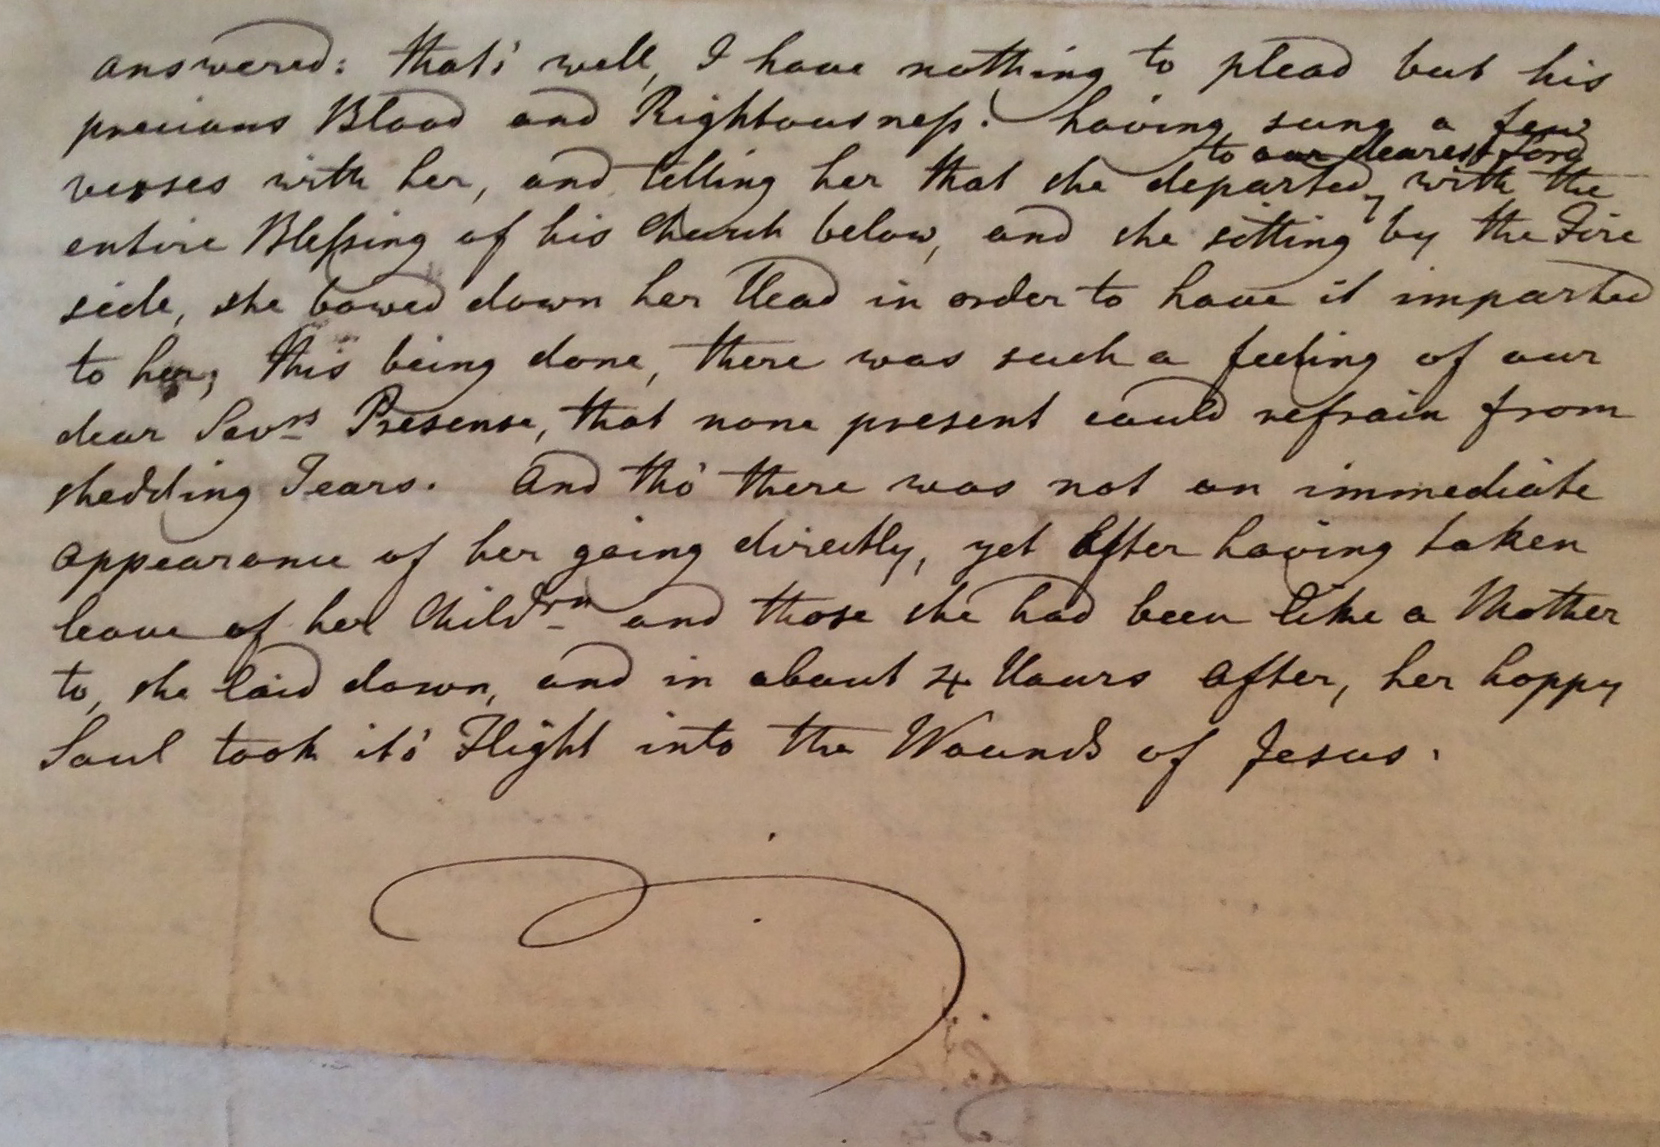 answered: that's well, I have nothing to plead but his
precious Blood and Rightousness. having sung a few
to our dearest Lord
verses with her, and telling her that she departed, with the
entire Blessing of his Church below, and she sitting by the Fire
side, she bowed down her Head in order to have it imparted
to her; this being done, there was such a feeling of our
dear Savrs Presense, that none present could refrain from
shedding Tears. And tho' there was not an immediate
appearance of her going directly, yet after having taken
leave of her Childrn and those she had been like a Mother
to, she laid down, and in about 4 Hours after, her happy
Soul took it's Flight into the Wounds of Jesus.